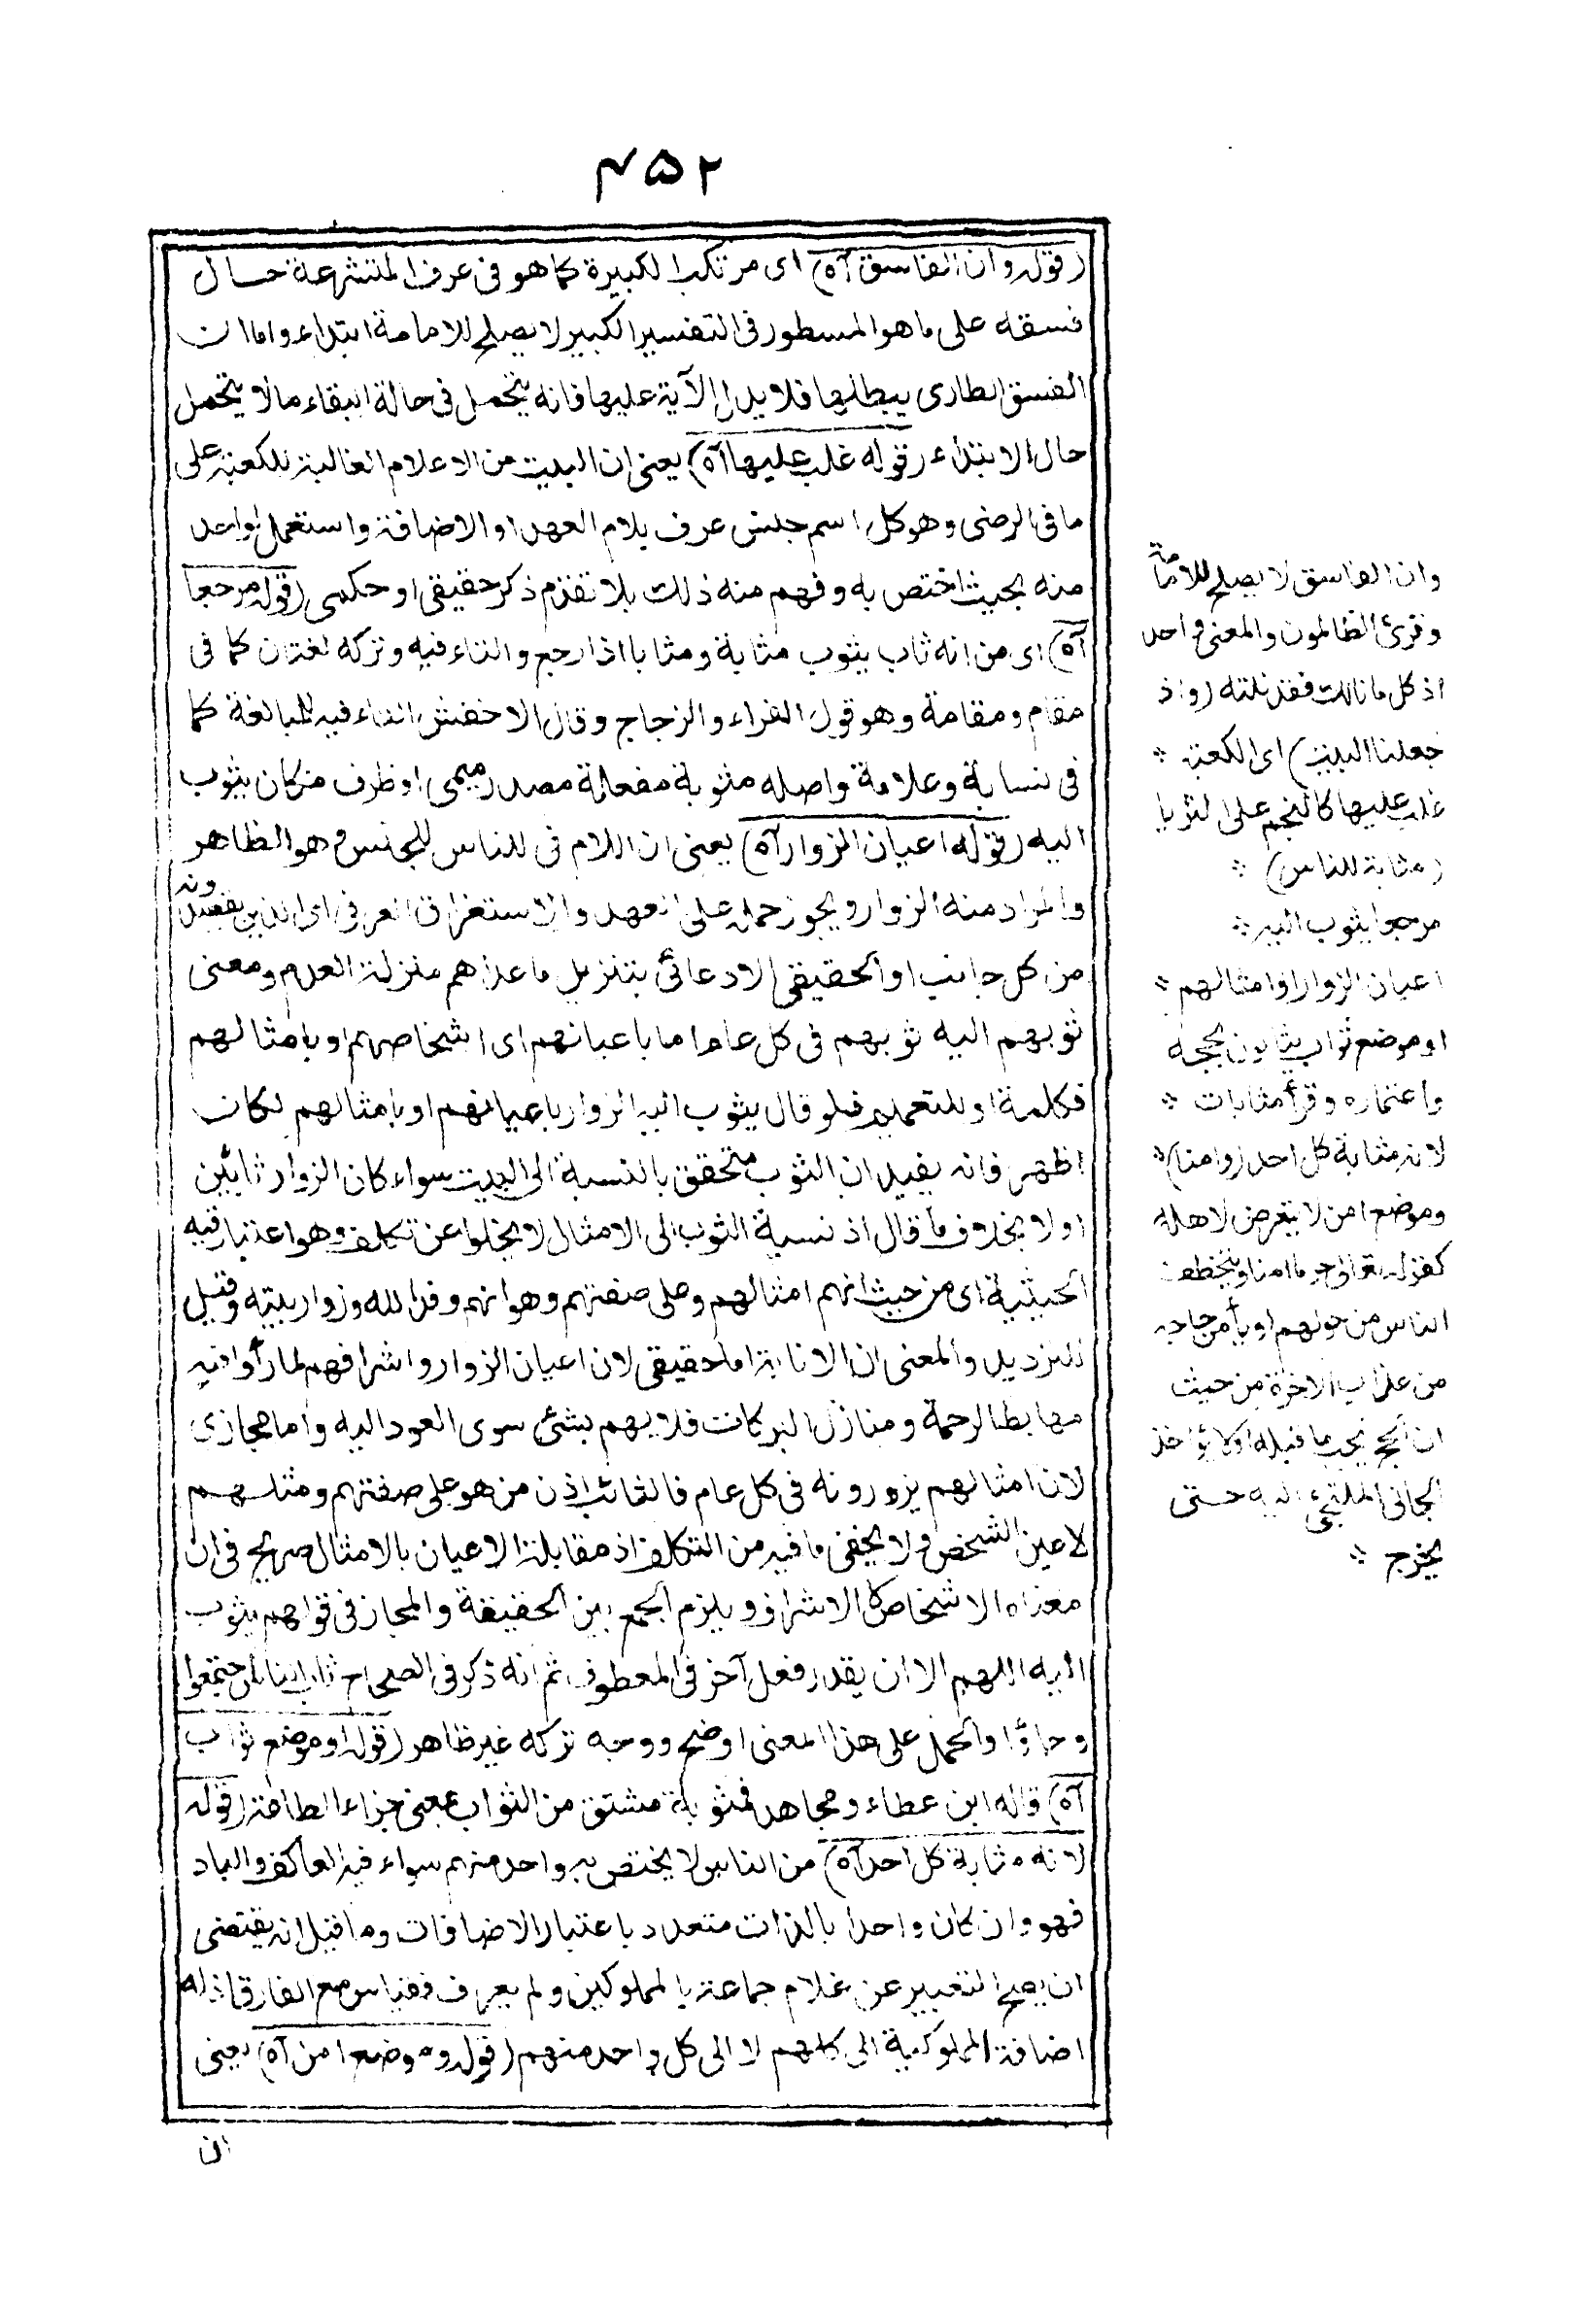 ٤٥٢
(قوله وان الفاسق آه) اى مرتكب الكبيرة كما هو فى عرف المتشرعة حال
فسقه على ما هو المسطور فى التفسير الكبير لا يصلح للامامة ابتداء واما ان
الفسق الطارى يبطلها فلا يدل الآية عليها فانه يتحمل فى حالة البقاء ما لا يتحمل
حال الابتداء (قوله غلب عليها آه) يعنى ان البيت من الاعلام الغالبة للكعبة على
ما فى الرضى وهو كل اسم جنس عرف بلام العهد او الاضافة واستعمل لواحد
منه بحيث اختص به وفهم منه ذلك بلا تقدم ذكر حقيقى او حكمى (قوله مرجعا
آه) اى من انه ثاب يثوب مثابة ومثابا اذا رجع والتاء فيه وتركه لغتان كما فى
مقام ومقامة وهو قول الفراء والزجاج وقال الاخفش التاء فيه للمبالغة كما
فى نسابة وعلامة واصله مثوبة مفعلة مصدر ميمى او ظرف مكان يثوب
اليه (قوله اعيان الزوار آه) يعنى ان اللام فى للناس للجنس وهو الظاهر
والمراد منه الزوار ويجوز حمله على العهد والاستغراق العرفى اى الذين يقصدونه
من كل جانب او الحقيقى الادعائى بتنزيل ما عداهم منزلة العدم ومعنى
ثوبهم اليه ثوبهم فى كل عام اما باعيانهم اى اشخاصهم او بامثالهم
فكلمة او للتعميم فلو قال يثوب اليه الزوار باعيانهم او بامثالهم لكان
اظهر فانه يفيد ان الثوب متحقق بالنسبة الى البيت سواء كان الزوار ثائبين
او لا بخلاف ما قال اذ نسبة الثوب الى الامثال لا يخلوا عن تكلف وهو اعتبار قيد
الحيثية اى من حيث انهم امثالهم وعلى صفتهم وهو انهم وفد الله وزوار بيته وقيل
للترديد والمعنى ان الانابة اما حقيقى لان اعيان الزوار واشرافهم لما رأوا فيه
مهابط الرحمة ومنازل البركات فلا يهم بشئ سوى العود اليه واما مجازى
لان امثالهم يزورونه فى كل عام فالغائب اذن من هو على صفتهم ومثلهم
لا عين الشخص ولا يخفى ما فيه من التكلف اذ مقابلة الاعيان بالامثال صريح فى ان
معناه الاشخاص لا الاشراف ويلزم الجمع بين الحقيقة والمجاز فى قولهم يثوب
اليه اللهم الا ان يقدر فعل آخر فى المعطوف ثم انه ذكر فى الصحاح ثاب الناس اجتمعوا
وجاؤا والحمل على هذا المعنى اوضح ووجه تركه غير ظاهر (قوله او موضع ثواب
آه) قاله ابن عطاء ومجاهد فمثوبة مشتق من الثواب بمعنى جزاء الطاعة (قوله
لانه مثابة كل احد آه) من الناس لا يختص به واحد منهم سواء فيه العاكف والباد
فهو وان كان واحدا بالذات متعدد باعتبار الاضافات وما قيل انه يقتضى
ان يصح التعبير عن غلام جماعة بالمملوكين ولم يعرف فقياس مع الفارق اذ له
اضافة المملوكية الى كلهم لا الى كل واحد منهم (قوله وموضع امن آه) يعنى
ان
وان الفاسق لا يصلح للامامة
وقرئ الظالمون والمعنى واحد
اذ كل ما نالك فقد نلته (واذ
جعلنا البيت) اى الكعبة
غلب عليها كالنجم على الثريا
(مثابة للناس)
مرجعا يثوب اليه
اعيان الزوار او امثالهم
او موضع ثواب يثابون بحجه
واعتماره وقرأ مثابات
لانه مثابة كل احد (وامنا)
وموضع امن لا يتعرض لاهله
كقوله تعالى حرما امنا ويتخطف
الناس من حولهم او يأمن حاجه
من عذاب الاخرة من حيث
ان الحج يجب ما قبله او لا يؤاخذ
الجانى الملتجئ اليه حتى
يخرج